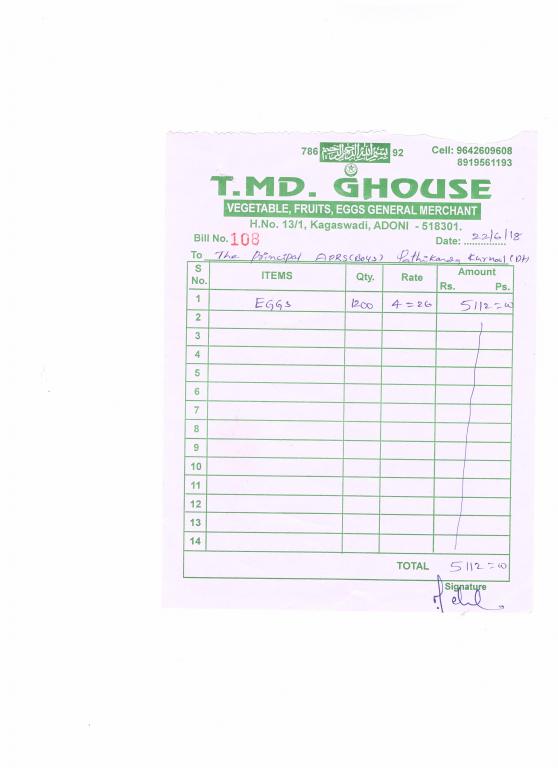 786 بسم الله الرحمن الرحيم 92
Cell: 9642609608
8919561193
T.MD. GHOUSE
VEGETABLE, FRUITS, EGGS GENERAL MERCHANT
H.No. 13/1, Kagaswadi, ADONI - 518301.
Bill No. 108 Date: 22/6/18
To The Principal APRS(Boys) Kurnool (Dt)
S No. ITEMS Qty. Rate Amount Rs. Ps.
1 EGGS 1200 4=26 5112=00
2
3
4
5
6
7
8
9
10
11
12
13
14
TOTAL 5112=00
Signature